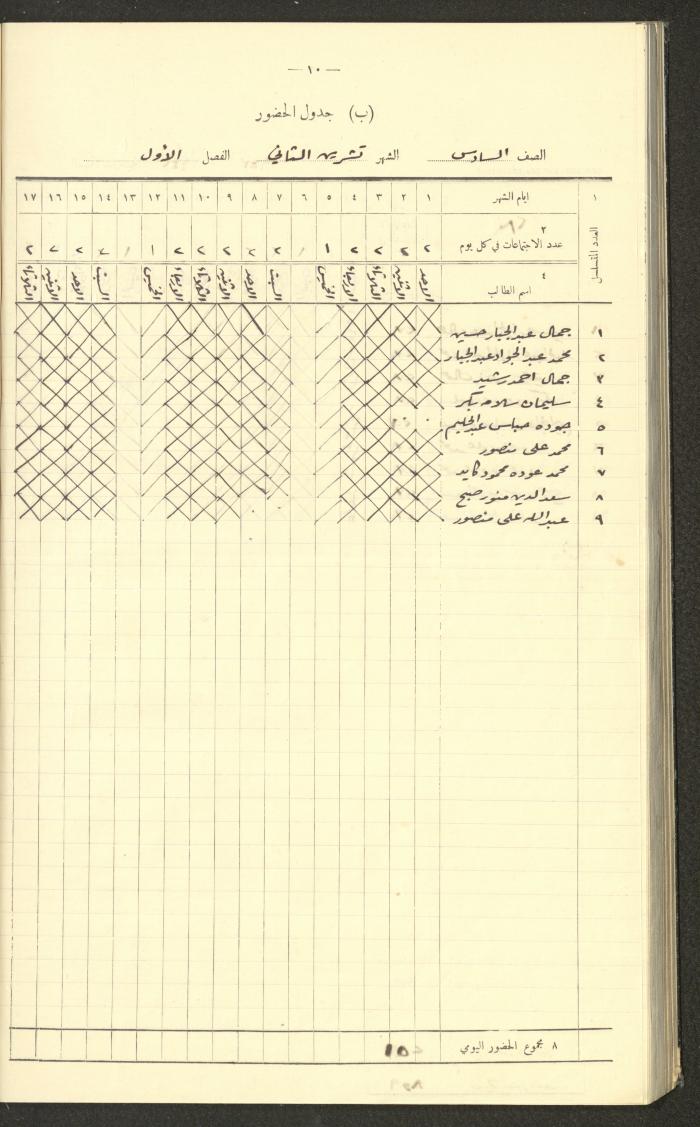 — ١٠ —
(ب) جدول الحضور
الصف السادس الشهر تشرين الثاني الفصل الأول
١ ايام الشهر ١ ٢ ٣ ٤ ٥ ٦ ٧ ٨ ٩ ١٠ ١١ ١٢ ١٣ ١٤ ١٥ ١٦ ١٧
العدد المتسلسل
٣
عدد الاجتماعات في كل يوم ٢ ٢ ٢ ٢ ١ / ٢ ٢ ٢ ٢ ٢ ١ / ٢ ٢ ٢ ٢
٤
اسم الطالب الاحد الاثنين الثلاثاء الاربعاء الخميس السبت الاحد الاثنين الثلاثاء الاربعاء الخميس السبت الاحد الاثنين الثلاثاء
١ جمال عبد الجبار حسين
٢ محمد عبد الجواد عبد الجبار
٣ جمال احمد رشيد
٤ سليمان سلامه بكر
٥ جوده عبد الحليم
٦ محمد علي منصور
٧ محمد عوده محمود كايد
٨ سعد الدين منور صبح
٩ عبد الله علي منصور
٨ مجموع الحضور اليومي